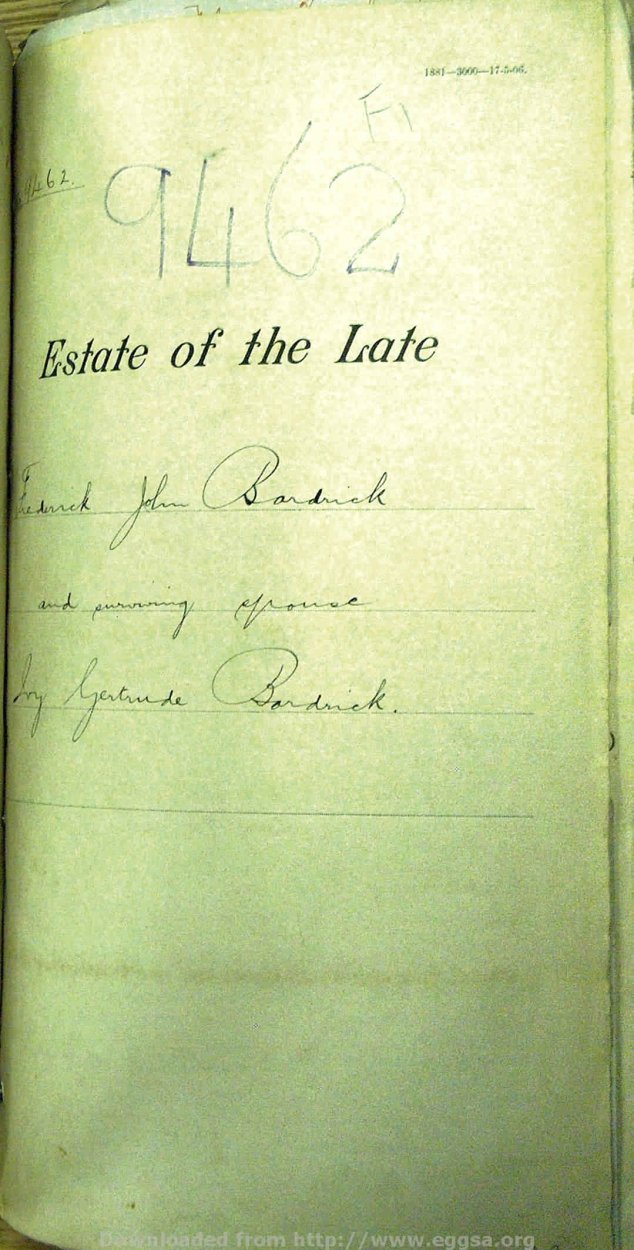 1881—3000—17-5-06.
F1
9462.
9462
Estate of the Late
Frederick John Bardrick
and surviving spouse
Ivy Gertrude Bardrick.
Downloaded from http://www.eggsa.org